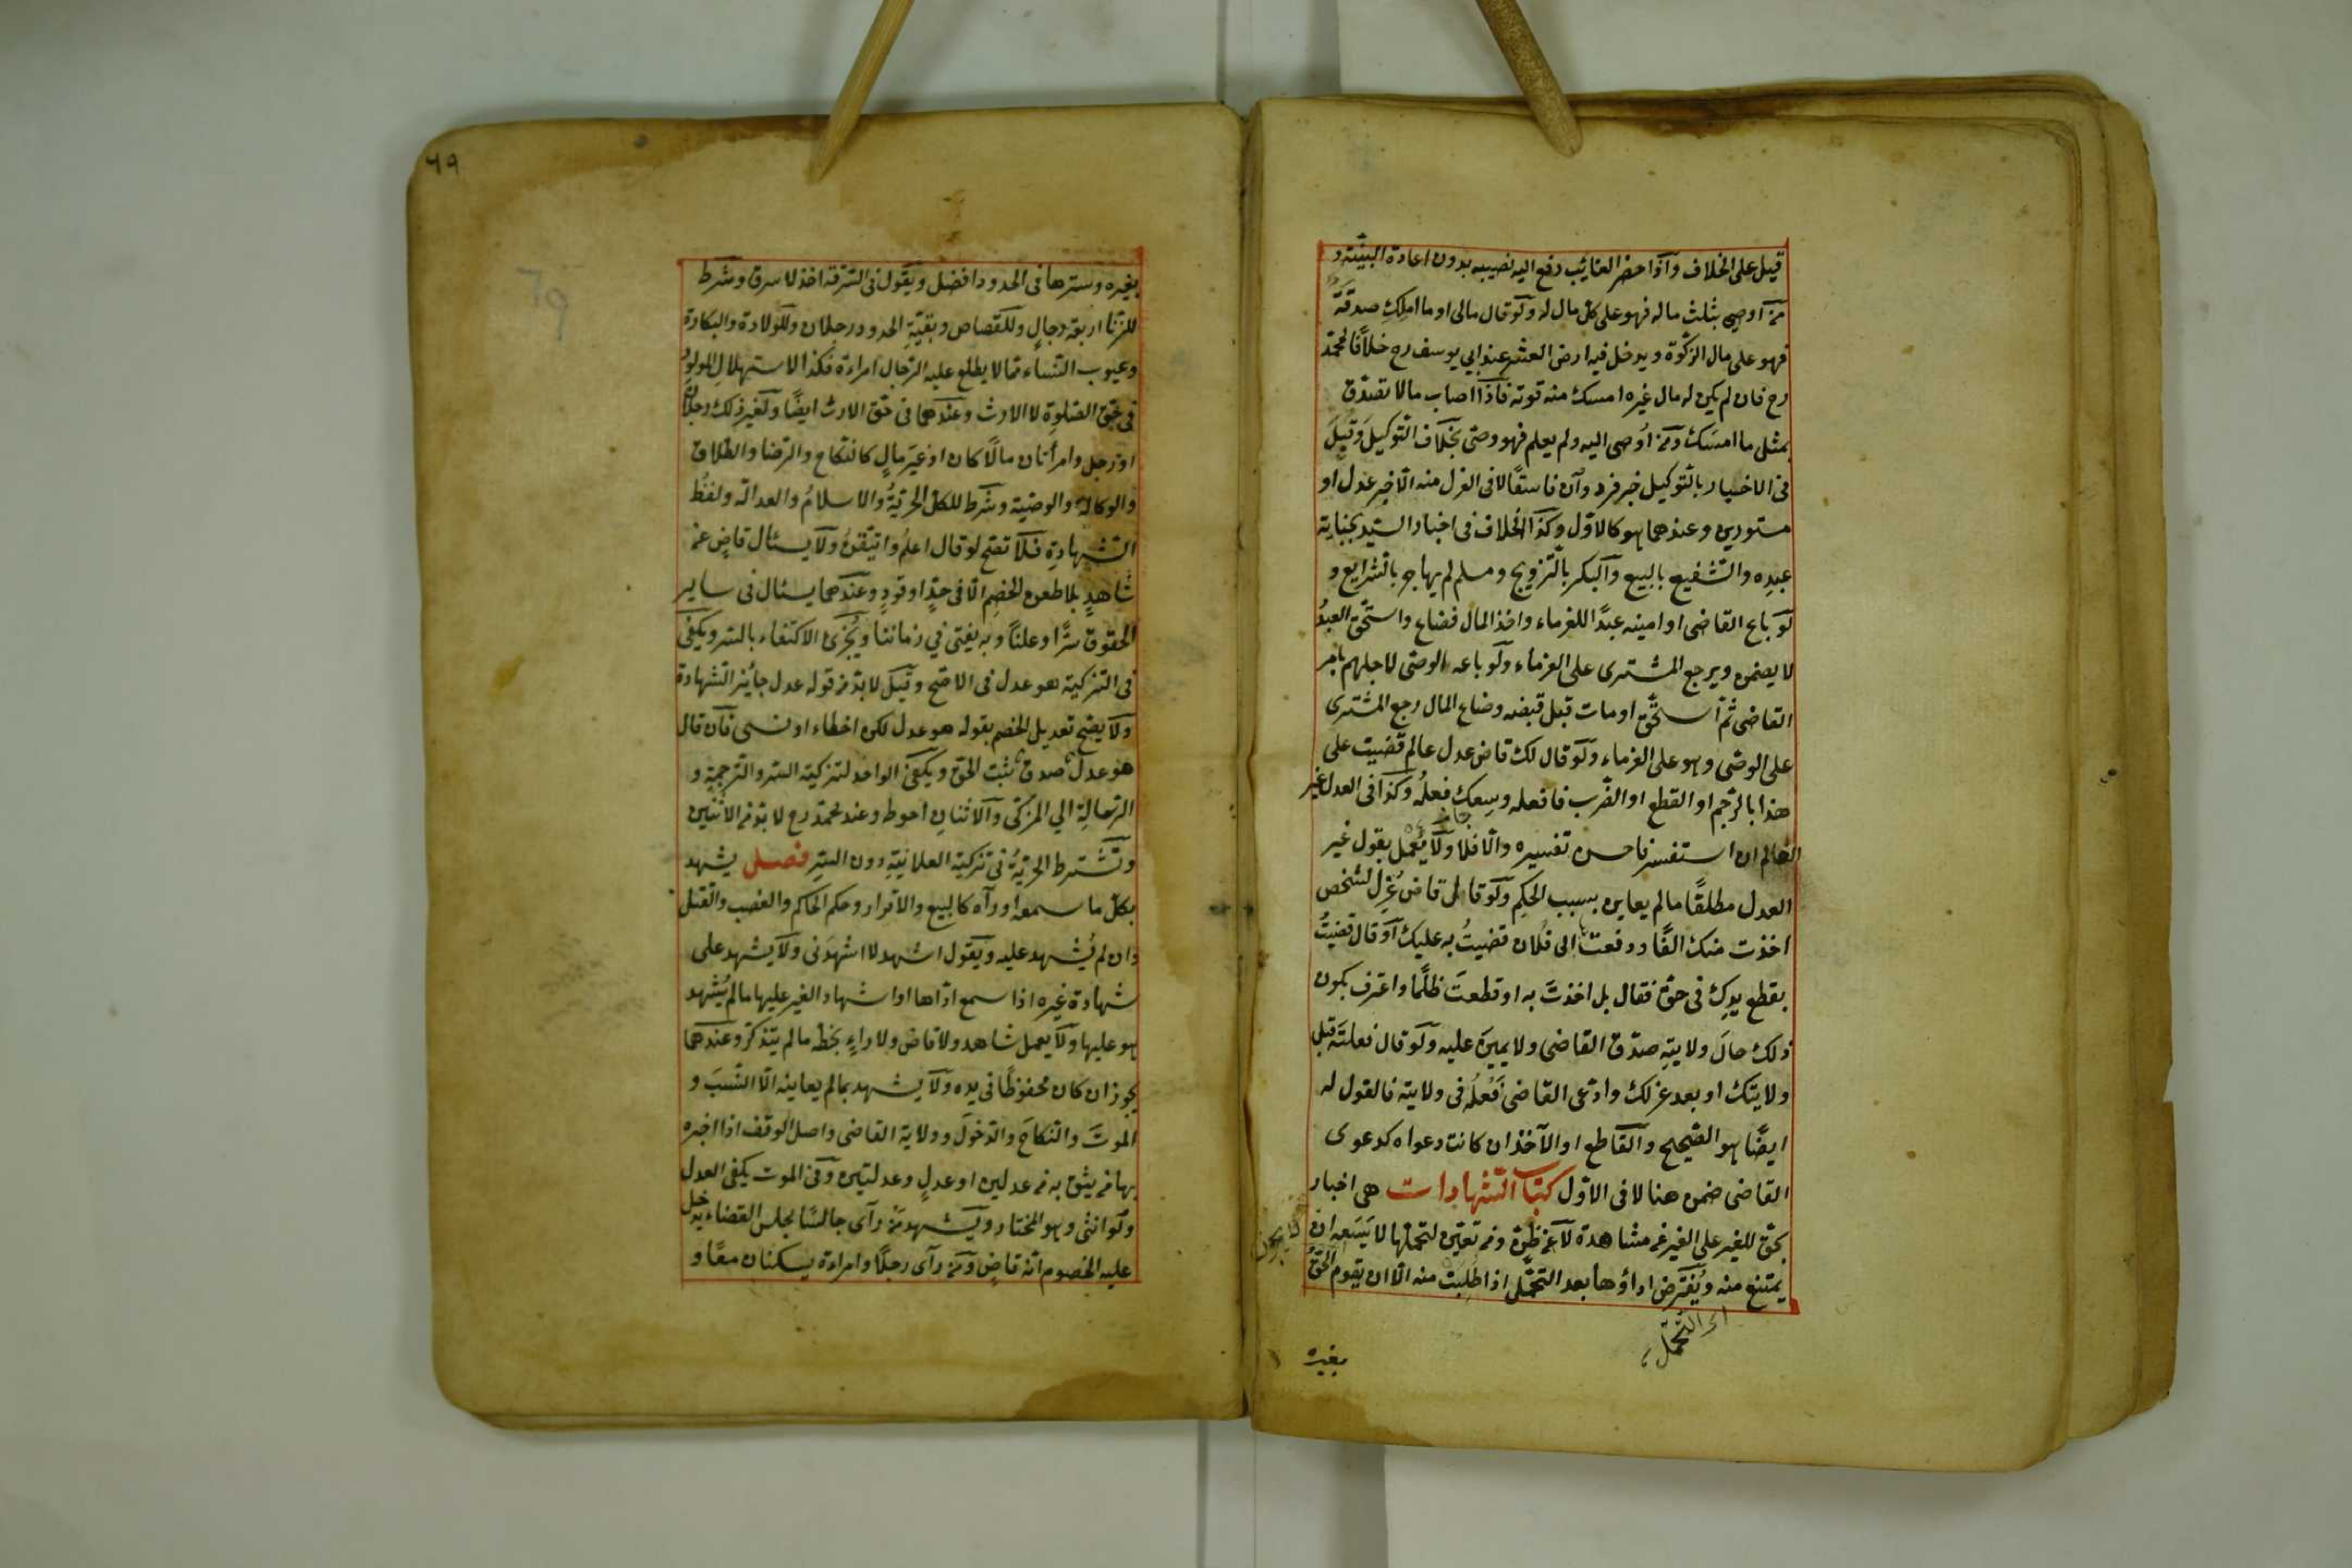 قيل على الخلاف وإذا حضر الغائب دفع اليه نصيبه بدون اعادة البينة و
من اوصى بثلث ماله فهو على كل مال له ولو قال مالى او ما املك صدقة
فهو على مال الزكوة ويدخل فيه ارض العشر عند ابي يوسف رح خلافا لمحمد
رح فان لم يكن له مال غيره امسك منه قوته فاذا اصاب مالا تصدق
بمثل ما امسك ومن اوصى اليه ولم يعلم فهو وصى بخلاف التوكيل وقيل
فى الاخبار بالتوكيل خبر فرد وان فاسقا لا فى العزل منه الا خبر عدل او
مستورين وعندهما هو كالاول وكذا الخلاف فى اخبار السيد بجناية
عبده والشفيع بالبيع والبكر بالتزويج ومسلم لم يهاجر بالشرايع و
لو باع القاضى او امينه عبدا للغرماء واخذ المال فضاع واستحق العبد
لا يضمن ويرجع المشترى على الغرماء ولو باعه الوصى لاجلهم بامر
القاضى ثم استحق او مات قبل قبضه وضاع المال رجع المشترى
على الوصى وهو على الغرماء ولو قال لك قاض عدل عالم قضيت على
هذا بالرجم او القطع او الضرب فافعله وسعك فعله وكذا فى العدل غير
العالم ان استفسر فاحسن تفسيره والا فلا ولا يعمل بقول غير
العدل مطلقا ما لم يعاين بسبب الحكم ولو قال قاض عزل لشخص
اخذت منك الفا ودفعت الى فلان قضيت به عليك او قال قضيت
بقطع يدك فى حق فقال بل اخذت به او قطعت ظلما واعترف بكون
ذلك حال ولايته صدق القاضى ولا يمين عليه ولو قال فعلته قبل
ولايتك او بعد عزلك وادعى القاضى فعله فى ولايته فالقول له
ايضا هو الصحيح والقاطع او الآخذ ان كانت دعواه كدعوى
القاضى ضمن هنا لا فى الاول كتاب الشهادات هى اخبار
بحق للغير على الغير عن مشاهدة لا عن ظن ومن تعين لتحملها لا يسعه ان
يمتنع منه ويفترض اداؤها بعد التحمل اذا طلبت منه الا ان يقوم الحق
اى التحمل
بغيره
٦٩
69
بغيره وسترها فى الحدود افضل ويقول فى السرقة اخذ لا سرق وشرط
للزنا اربعة رجال وللقصاص وبقية الحدود رجلان وللولادة والبكارة
وعيوب النساء مما لا يطلع عليه الرجال امراءة فكذا الاستهلال المولود
فى حق الصلوة لا الارث وعندهما فى حق الارث ايضا ولغير ذلك رجلان
او رجل وامرأتان مالا كان او غير مال كالنكاح والرضا والطلاق
والوكالة والوصية وشرط للكل الحرية والاسلام والعدالة ولفظ
الشهادة فلا تصح لو قال اعلم واتيقن ولا يسئال قاض عن
شاهد بلا طعن الخصم الا فى حد او قود وعندهما يسئال فى ساير
الحقوق سرا وعلنا وبه يفتى فى زماننا ويجزى الاكتفاء بالسر ويكفى
فى التزكية هو عدل فى الاصح وقيل لا بد من قوله عدل جايز الشهادة
ولا يصح تعديل الخصم بقوله هو عدل لكن اخطاء او نسى فان قال
هو عدل صدق ثبت الحق ويكفى الواحد لتزكية السر والترجمة و
الرسالة الى المزكى والاثنان احوط وعند محمد رح لا بد من الاثنين
وتشترط الحرية فى تزكية العلانية دون السر فصل يشهد
بكل ما سمعه او رآه كالبيع والاقرار وحكم الحاكم والغصب والقتل
وان لم يشهد عليه ويقول اشهد لا اشهدنى ولا يشهد على
شهادة غيره اذا سمع اداها او اشهاد الغير عليها ما لم يشهد
هو عليها ولا يعمل شاهد ولا قاض ولا راو بخطه ما لم يتذكر وعندهما
يجوز ان كان محفوظا فى يده ولا يشهد بما لم يعاينه الا النسب و
الموت والنكاح والدخول وولاية القاضى واصل الوقف اذا اخبره
بها من يثق به من عدلين او عدل وعدلتين وفى الموت يكفى العدل
ولو انثى وهو المختار ويشهد من رآى جالسا مجلس القضاء يدخل
عليه الخصوم انه قاض ومن رآى رجلا وامراءة يسكنان معا و